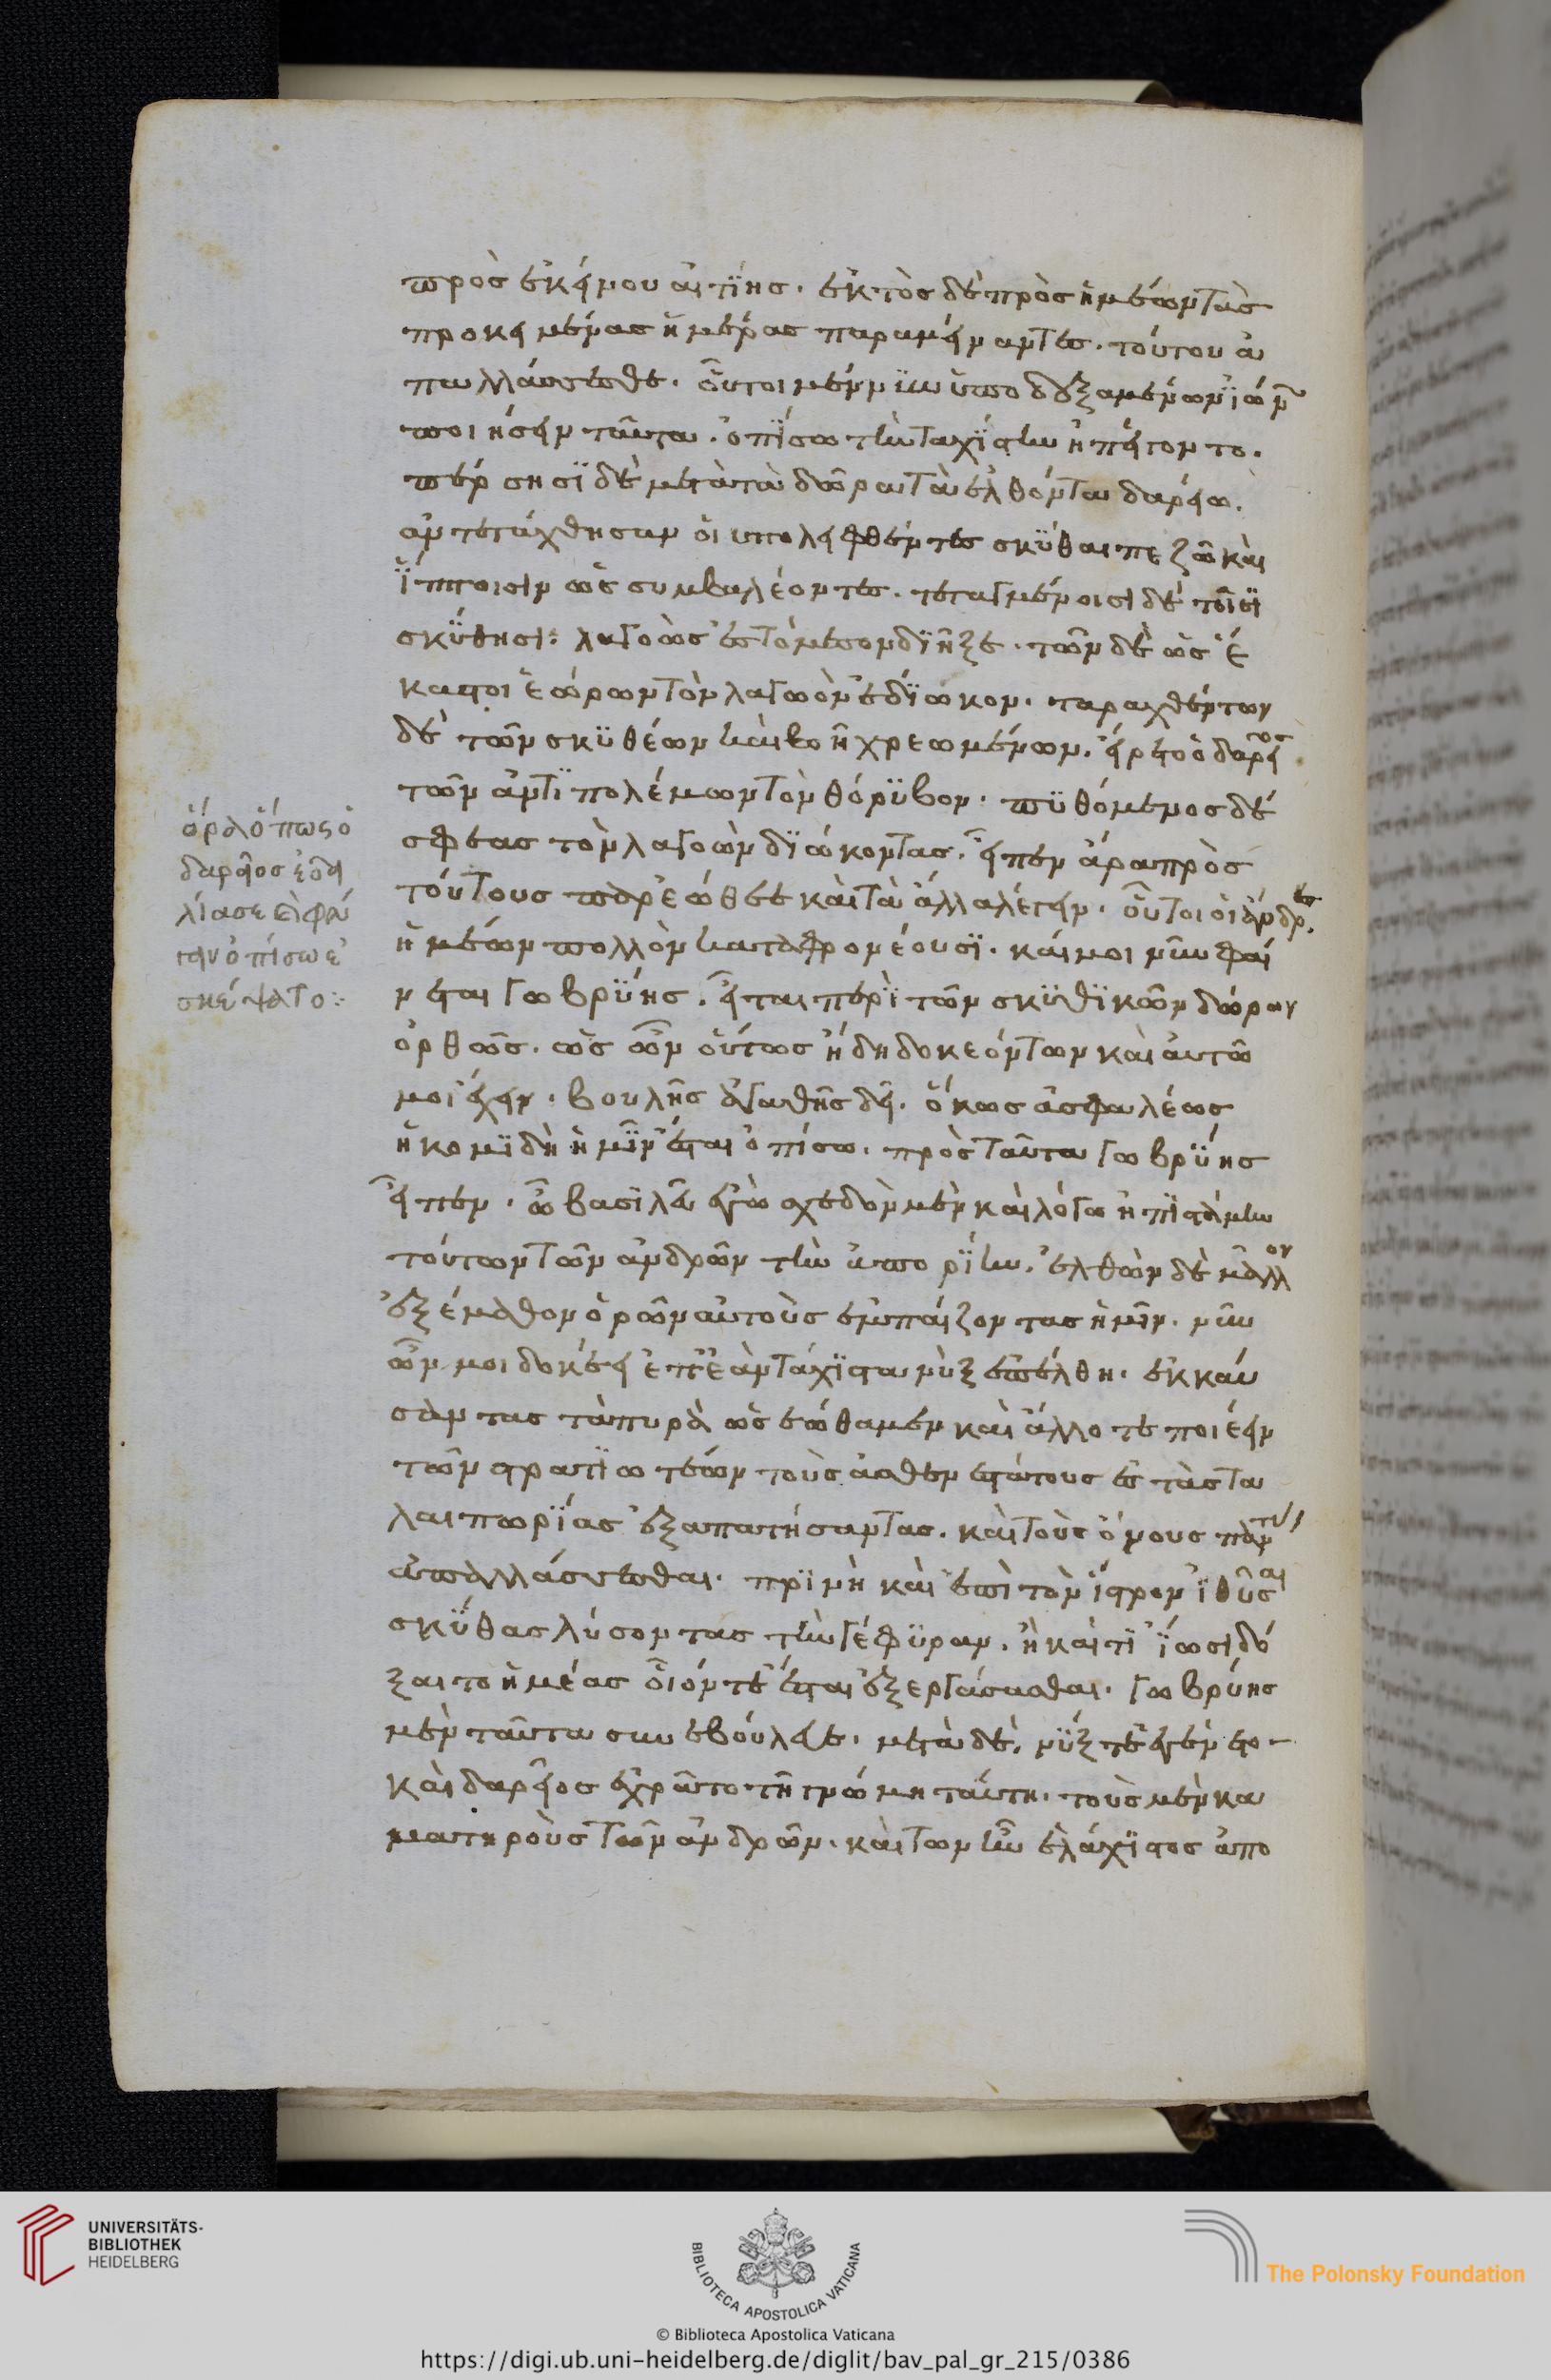 πρὸς ἐκείνου αἰτίης. ἐκτὸς δὲ πρὸς ἡμέων τὰς
προκειμένας ἡμέρας παραμείναντες. τούτου ἀ
παλλάσσεσθε. οὗτοι μέν νϊν ὑποδεξαμένων ἰών
ποιήσειν ταῦτα. ὀπίσω τὴν ταχίστην ἠπείγοντο.
πέρσησι δὲ μετὰ τὰ δῶρα τὰ ἐλθόντα δαρείω.
ἀντετάχθησαν οἱ υπολειφθέντες σκύθαι πεζῶ καὶ
ἵπποισιν ὡς συμβαλέοντες. τεταγμένοισι δὲ τοῖσι
σκύθησι: λαγοὼς ἐς τὸ μέσον διῆξε. τῶν δὲ ὡς ἕ
καστοι ἑώρων τὸν λαγωὸν ἐδίωκον. ταραχθέντων
δὲ τῶν σκυθέων καὶ βοῆ χρεωμένων. εἴρετο ὁ δαρεῖος
τῶν ἀντιπολέμων τὸν θόρυβον. πυθόμενος δέ
σφεας τὸν λαγοὼν διώκοντας. εἶπεν ἄρα πρὸς
τούτους πρὸ ἐώθεε καὶ τὰ ἄλλα λέγειν. οὗτοι οἱ ἄνδρες
ἡμέων πολλὸν καταφρονέουσι. καί μοι νῦν φαί
νεται γωβρύης. εἶπαι περὶ τῶν σκυθικῶν δώρων
ὀρθῶς. ὡς ὦν οὕτως ἤδη δοκεόντων καὶ αὐτῶ
μοι ἔχειν. βουλῆς ἀγαθῆς δεῖ. ὅκως ἀσφαλέως
ἡ κομιδὴ ἡμῖν ἔσται ὀπίσω. πρὸς ταῦτα γωβρύης
εἶπεν. ὦ βασιλεῦ ἐγὼ σχεδὸν μὲν καὶ λόγω ἠπιστάμην
τούτων τῶν ἀνδρῶν τὴν ἀπορίην. ἐλθὼν δὲ μᾶλλον
ἐξέμαθον ὁρῶν αὐτοὺς ἐμπαίζοντας ἡμῖν. νῦν
ὦν μοι δοκέει ἐπεὰν τάχιστα νὺξ ἐπέλθη. ἐκκαύ
σαντας τὰ πυρὰ ὡς ἐώθαμεν καὶ ἄλλοτε ποιέειν
τῶν στρατιωτέων τοὺς ἀσθενεστάτους ἐς τὰς τα
λαιπωρίας ἐξαπατήσαντας. καὶ τοὺς ὄνους πάντας
ἀπαλλάσσεσθαι. πρὶ μὴ καὶ ἐπὶ τὸν ἴστρον ἰθῦσαι
σκύθας λύσοντας τὴν γέφυραν. ἢ καὶ τι ἴωσι δό
ξαι τὸ ἡμέας οἷόν τε ἔσται ἐξεργάσασθαι. γωβρύης
μὲν ταῦτα συνεβούλευε. μετὰ δὲ, νύξ τε ἐγένετο
καὶ δαρεῖος ἐχρᾶτο τῆ γνώμη ταύτη. τοὺς μὲν κα
ματηροὺς τῶν ἀνδρῶν. καὶ τῶν ἦν ἐλάχιστος ἀπο
ὅρα ὅπως ὁ
δαρεῖος ἐδει
λίασε εἰ φυ
γὴν ὀπίσω ἐ
σκέψατο:
UNIVERSITÄTS-
BIBLIOTHEK
HEIDELBERG
BIBLIOTECA APOSTOLICA VATICANA
The Polonsky Foundation
© Biblioteca Apostolica Vaticana
https://digi.ub.uni-heidelberg.de/diglit/bav_pal_gr_215/0386